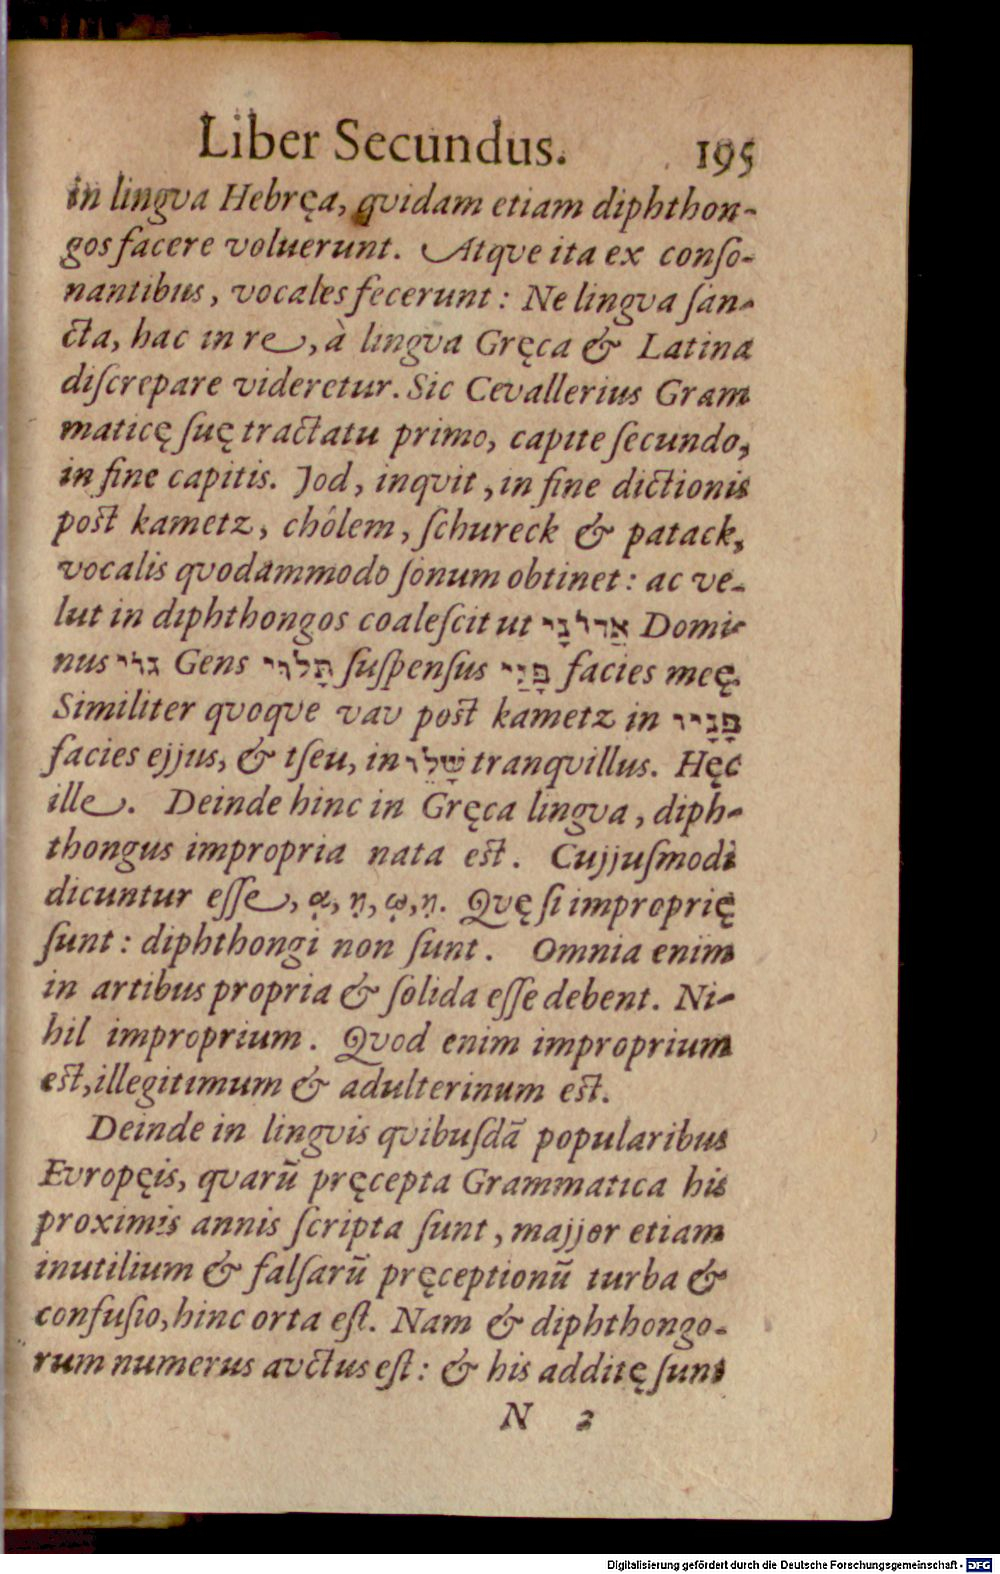 Liber Secundus. 195
in lingva Hebręa, qvidam etiam diphthon-
gos facere voluerunt. Atqve ita ex conſo-
nantibus, vocales fecerunt: Ne lingva ſan-
cta, hac in re, à lingva Gręca & Latina
diſcrepare videretur. Sic Cevallerius Gram
maticę ſuę tractatu primo, capite ſecundo,
in fine capitis. Jod, inqvit, in fine dictionis
post kametz, chólem, ſchureck & patack,
vocalis qvodammodo ſonum obtinet: ac ve-
lut in diphthongos coaleſcit ut אֲדוֹנָי Domi-
nus גוֹי Gens תָּלוּי ſuſpenſus פָּנַי facies meę.
Similiter qvoqve vav post kametz in פָּנָיו
facies ejjus, & tſeu, in שָׁלֵו tranqvillus. Hęc
ille. Deinde hinc in Gręca lingva, diph-
thongus impropria nata est. Cujjuſmodi
dicuntur eſſe, ᾳ, ῃ, ῳ, ῃ. Qvę ſi improprię
ſunt: diphthongi non ſunt. Omnia enim
in artibus propria & ſolida eſſe debent. Ni-
hil improprium. Qvod enim improprium
est, illegitimum & adulterinum est.
Deinde in lingvis qvibuſdã popularibus
Evropęis, qvarũ pręcepta Grammatica his
proximis annis ſcripta ſunt, majjor etiam
inutilium & falſarũ pręceptionũ turba &
confuſio, hinc orta eſt. Nam & diphthongo-
rum numerus avctus eſt: & his additę ſunt
N 2
Digitalisierung gefördert durch die Deutsche Forschungsgemeinschaft - DFG